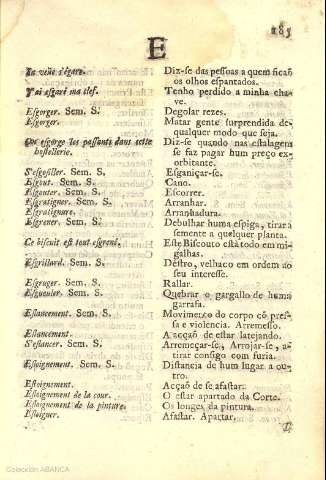 E
Sa veuë s'égare. Diz-se das pessoas a quem ficaõ
os olhos espantados.
J'ai esgaré ma clef. Tenho perdido a minha cha-
ve.
Esgorger. Sem. S. Degolar rezes.
Esgorger. Matar gente surprendida de
qualquer modo que seja.
On esgorge les passants dans cette Diz-se quando nas estalagens
hostellerie. se faz pagar hum preço ex-
orbitante.
S'esgosiller. Sem. S. Esganiçar-se.
Esgout. Sem. S. Cano.
Esgouter. Sem. S. Escorrer.
Esgratigner. Sem. S. Arranhar.
Esgratignure. Arranhadura.
Esgrener. Sem. S. Debulhar huma espiga, tirar a
semente a qualquer planta.
Ce biscuit est tout esgrené. Este Biscouto está todo em mi-
galhas.
Esgrillard. Sem. S. Destro, velhaco em ordem ao
seu interesse.
Esgruger. Sem. S. Rallar.
Esgueuler. Sem. S. Quebrar o gargallo de huma
garrafa.
Eslancement. Sem. S. Movimento do corpo cõ pres-
sa e violencia. Arremesso.
Eslancement. A acçaõ de estar latejando.
S'eslancer. Sem. S. Arremeçar-se, Arrojar-se, a-
tirar consigo com furia.
Esloignement. Sem. S. Distancia de hum lugar a ou-
tro.
Esloignement. Acçaõ de se afastar.
Esloignement de la cour. O estar apartado da Corte.
Esloignement de la peinture. Os longes da pintura.
Esloigner. Afastar. Apartar.
Colección ABANCA